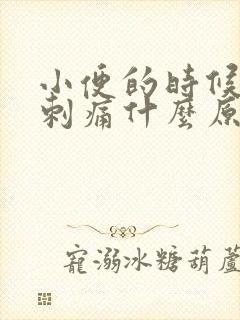 小便的時候
刺痛什麼原
寵溺冰糖葫蘆